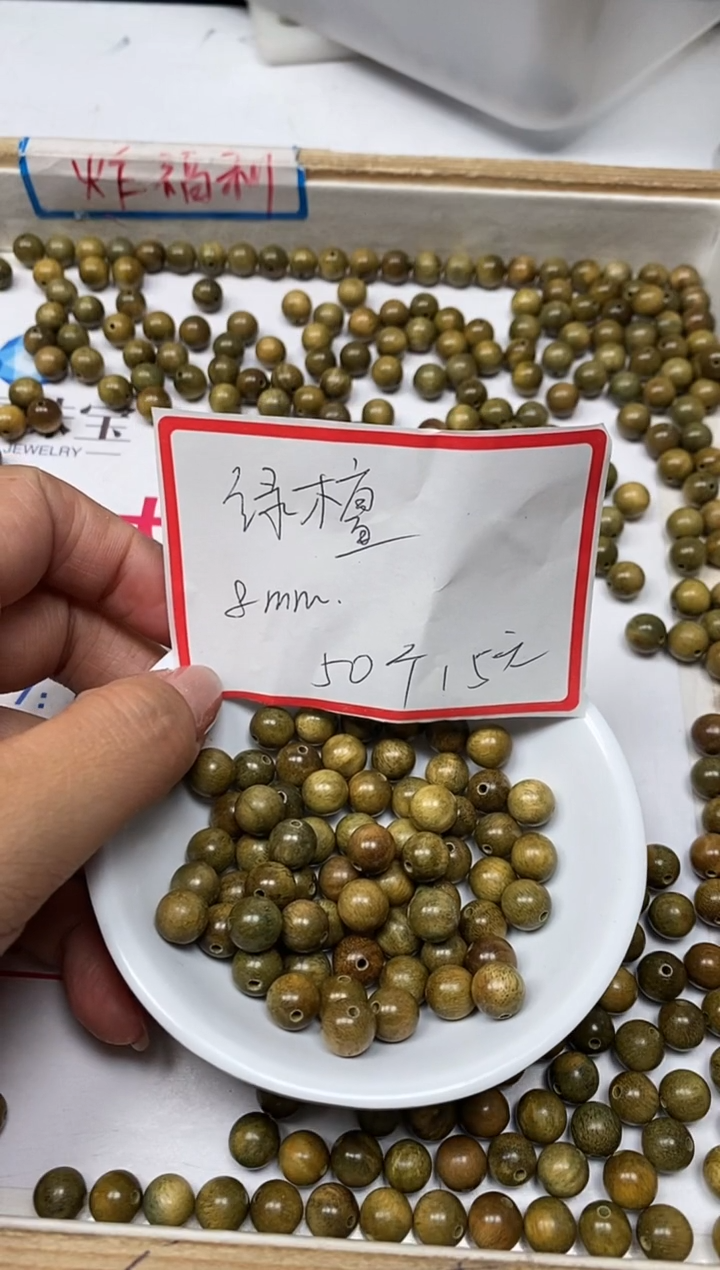 炸福利
宝
JEWELRY
绿檀
8mm.
50子15元